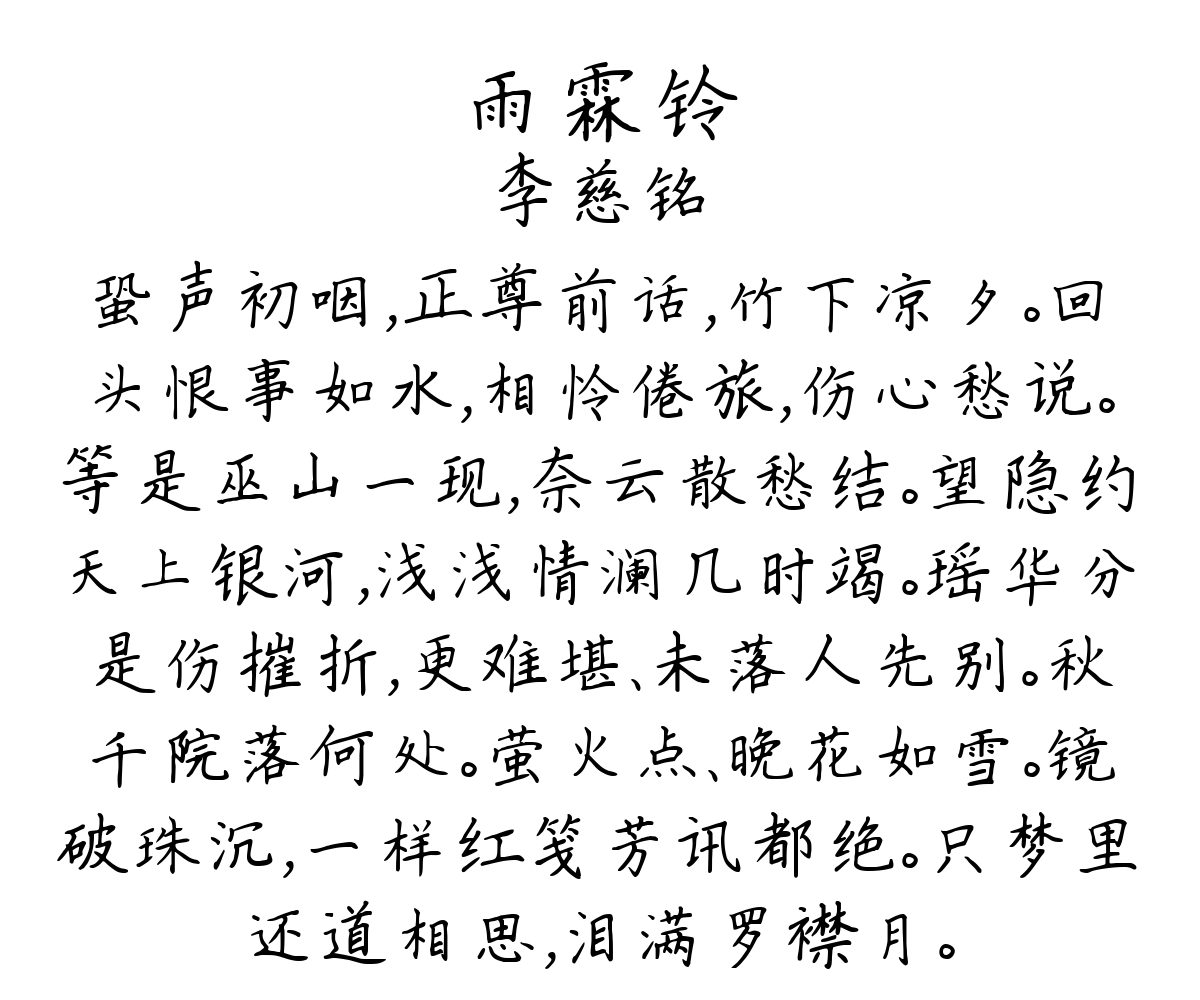 雨霖铃
李慈铭
蛩声初咽,正尊前话,竹下凉夕。回
头恨事如水,相怜倦旅,伤心愁说。
等是巫山一现,奈云散愁结。望隐约
天上银河,浅浅情澜几时竭。瑶华分
是伤摧折,更难堪、未落人先别。秋
千院落何处。萤火点、晚花如雪。镜
破珠沉,一样红笺芳讯都绝。只梦里
还道相思,泪满罗襟月。